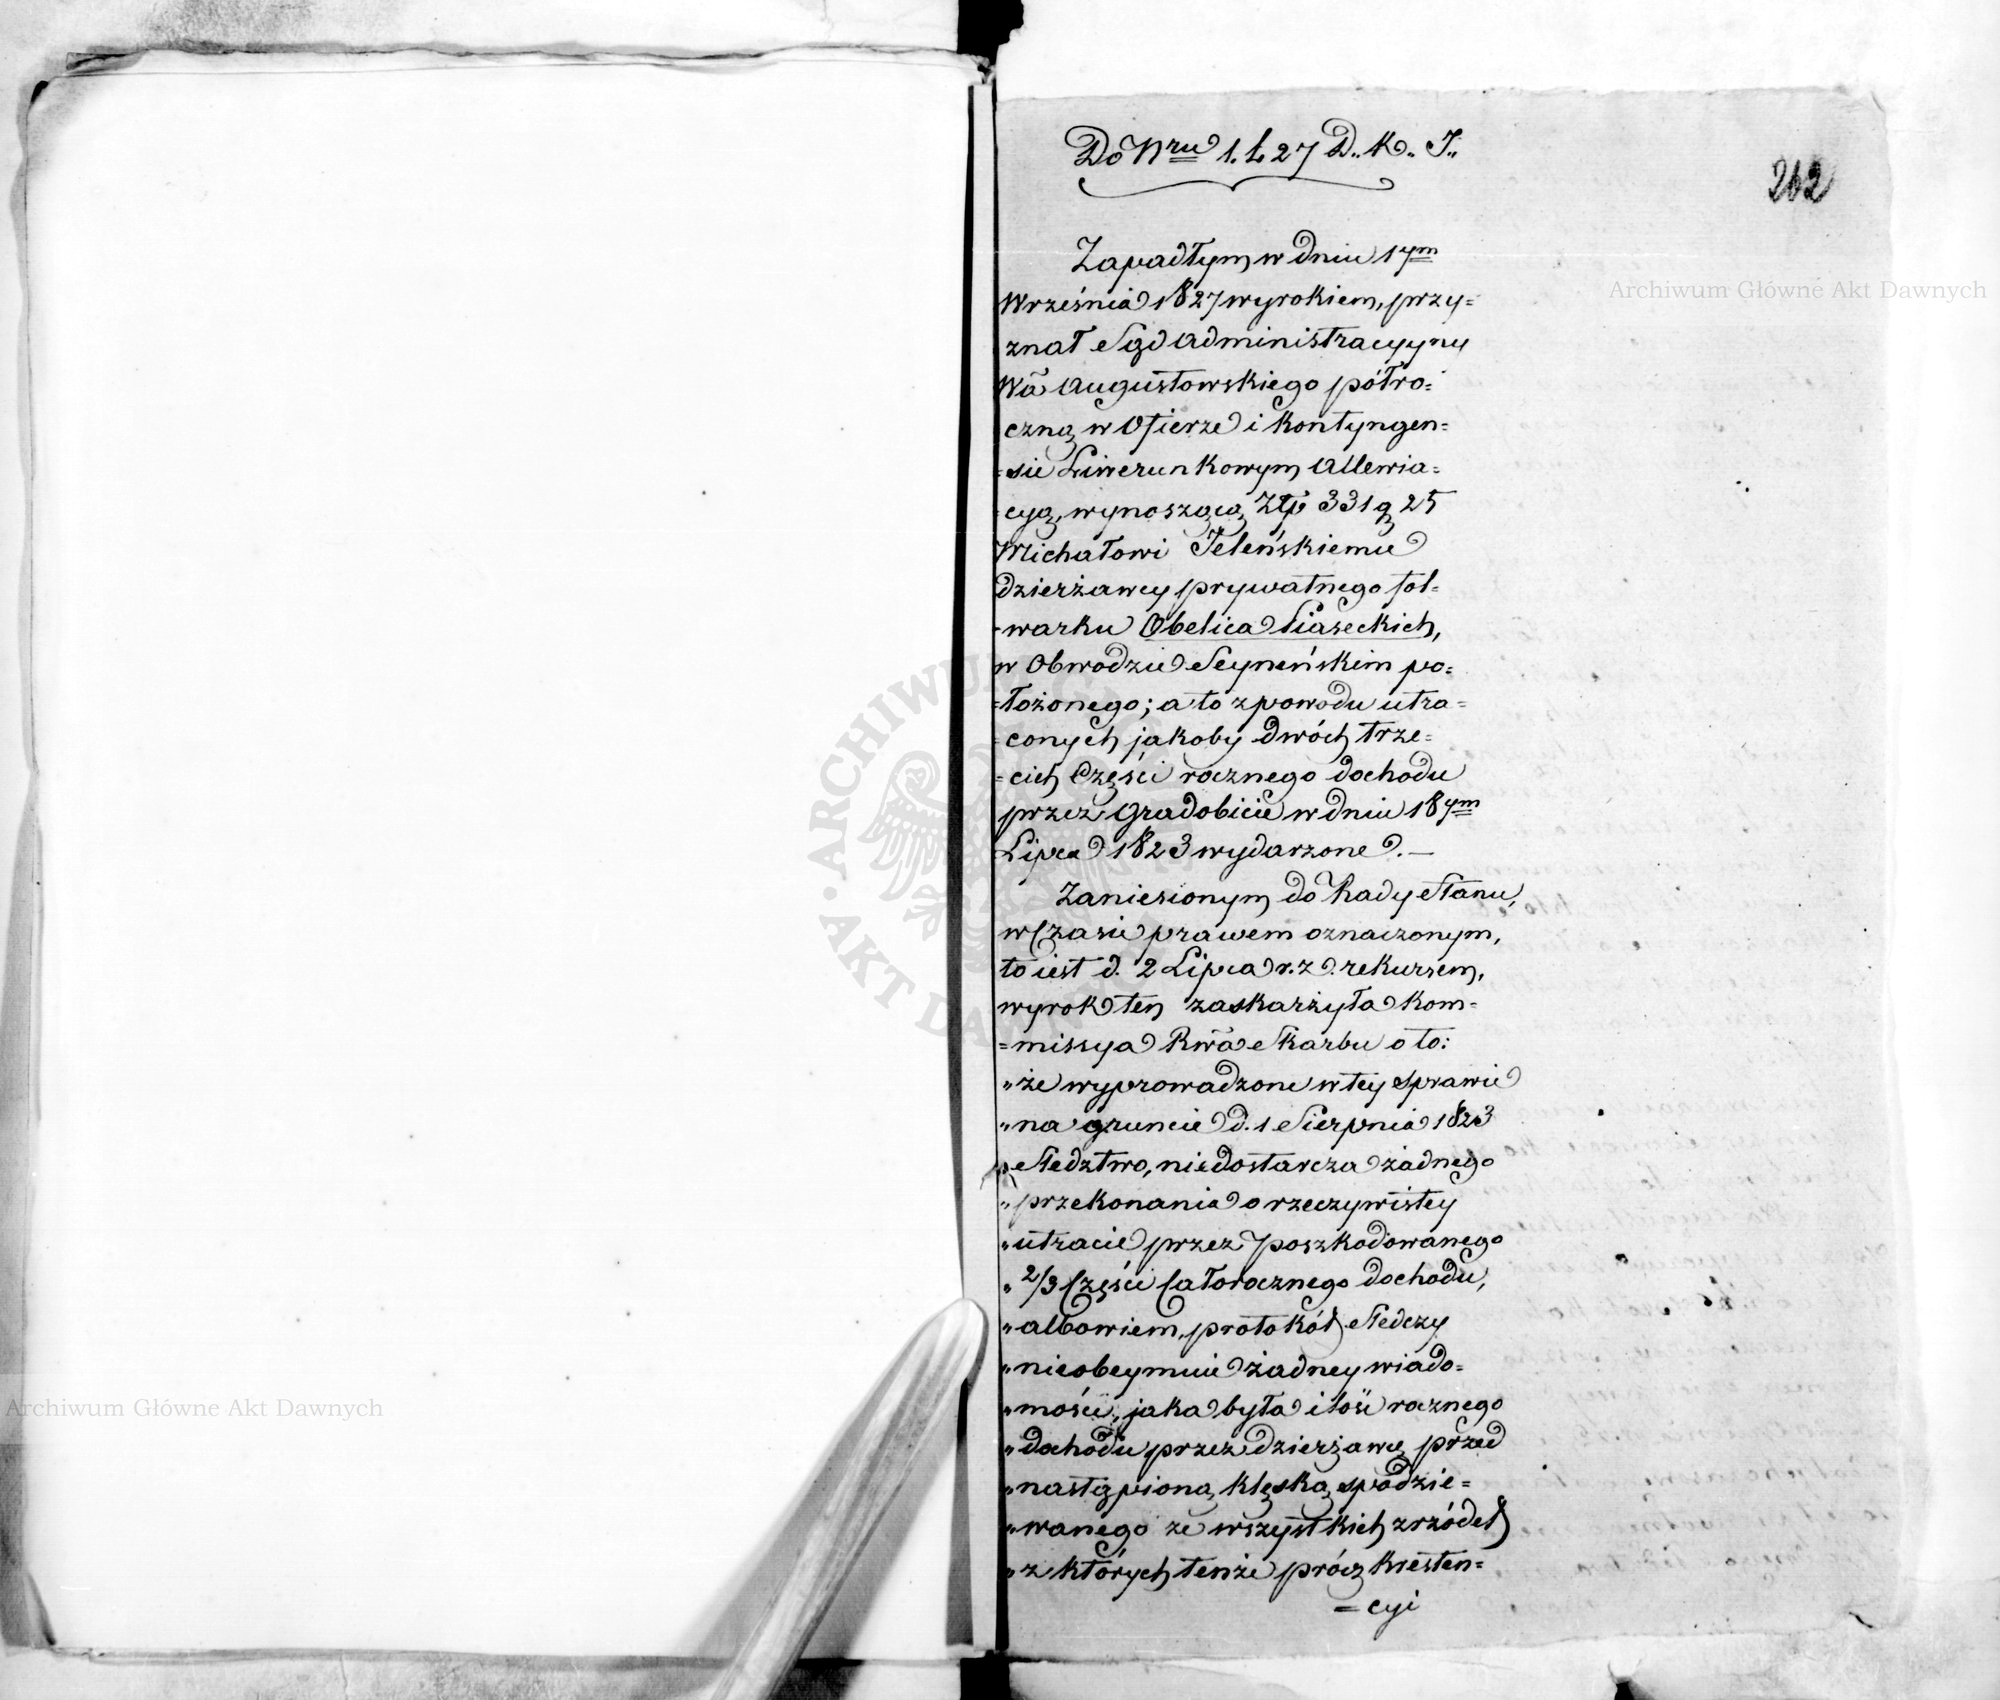 Do Nru 1. Ł 27 D.. K.. J..
262
Zapadłym w dniu 1ym
Września 1827 wyrokiem, przy=
znał Sąd administracyyny
Wã Augustowskiego półro=
czną w Ofierze i Kontyngen=
=sie Liwerunkowym Allewia=
=cyą, wynoszącą Złp 331 g 25
Michałowi Jeleńskiemu
dzierżawcy prywatnego fol=
=warku Obelica Piaseckich,
w Obwodzie Seyneńskim po=
=łożonego; a to z powodu utra=
=conych jakoby dwóch trze=
=cich Części rocznego dochodu
przez Gradobicie w dniu 18ym
Lipca 1823 wydarzone. —
Zaniesionym do Rady Stanu,
w Czasie prawem oznaczonym,
to iest d. 2 Lipca r. z. rekursem,
wyrok ten zaskarżyła Kom=
=missya Rwã Skarbu o to:
„że wyprowadzone w tey sprawie
„na gruncie d. 1 Sierpnia 1823
„Sledztwo, niedostarcza żadnego
„przekonania o rzeczywistey
„utracie przez Poszkodowanego
„2/3 Części Całorocznego dochodu,
„albowiem, protokół Sledczy
„nieobeymuie żadney wiado=
„mości, jaka była ilość rocznego
„dochodu przez dzierżawcę przed
„nastąpioną klęską spodzie=
„wanego ze wszystkich zrzódeł
„z których tenże prócz kresten=
=cyi
Archiwum Główne Akt Dawnych
Archiwum Główne Akt Dawnych
ARCHIWUM · AKT DAW